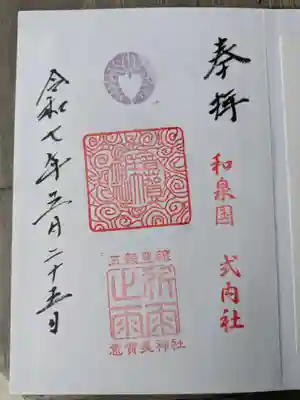 奉拝
和泉国 式内社
五穀豊穣
祈雨
止雨
意賀美神社
令和七年五月二十五日